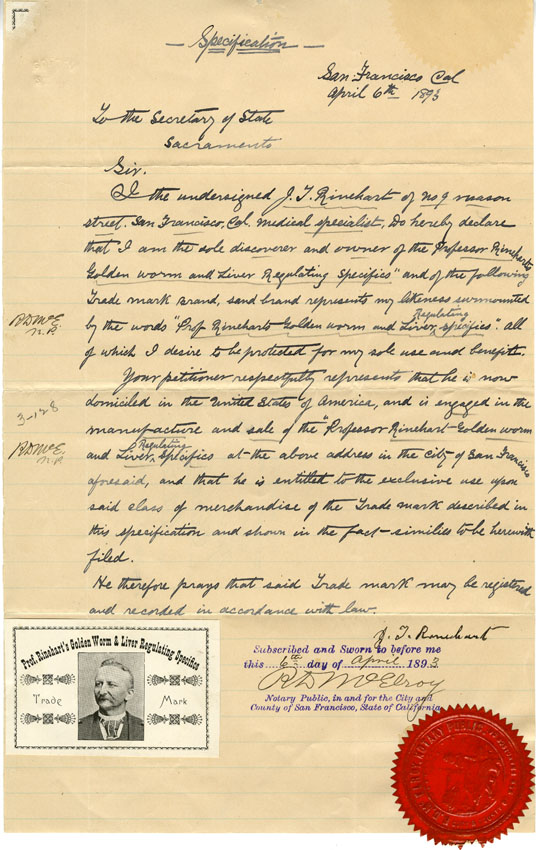 Specification
San Francisco Cal
April 6th 1893
To the Secretary of State
Sacramento
Sir.
I the undersigned J. T. Rinehart of No 9 mason
street. San Francisco, Cal. medical specialist, Do hereby declare
that I am the sole discoverer and owner of the Professor Rineharts
Golden worm and Liver Regulating Specifics" and of the following
Trade mark Brand, said brand represents my likeness surmounted
Regulating
by the words "Prof Rineharts Golden worm and Liver, specifics". all
of which I desire to be protected for my sole use and benefit.
Your petitioner respectfully represents that he is now
domiciled in the United States of America, and is engaged in the
manufacture and sale of the "Professor Rinehart-Golden worm
Regulating
and Liver, Specifics at the above address in the City of San Francisco
aforesaid, and that he is entitled to the exclusive use upon
said class of merchandise of the Trade mark described in
this specification and shown in the fact-similies to be herewith
filed.
He therefore prays that said Trade mark may be registered
and recorded in accordance with law.
J. T. Rinehart
RDMcE.
N.P.
3-128
RDMcE.
N.P.
Subscribed and Sworn to before me
this 6th day of April 1893
R D McElroy
Notary Public, in and for the City and
County of San Francisco, State of California
Prof. Rinehart's Golden Worm & Liver Regulating Specifics
Trade Mark